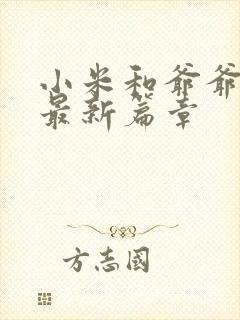 小米和爷爷
最新篇章
方志國